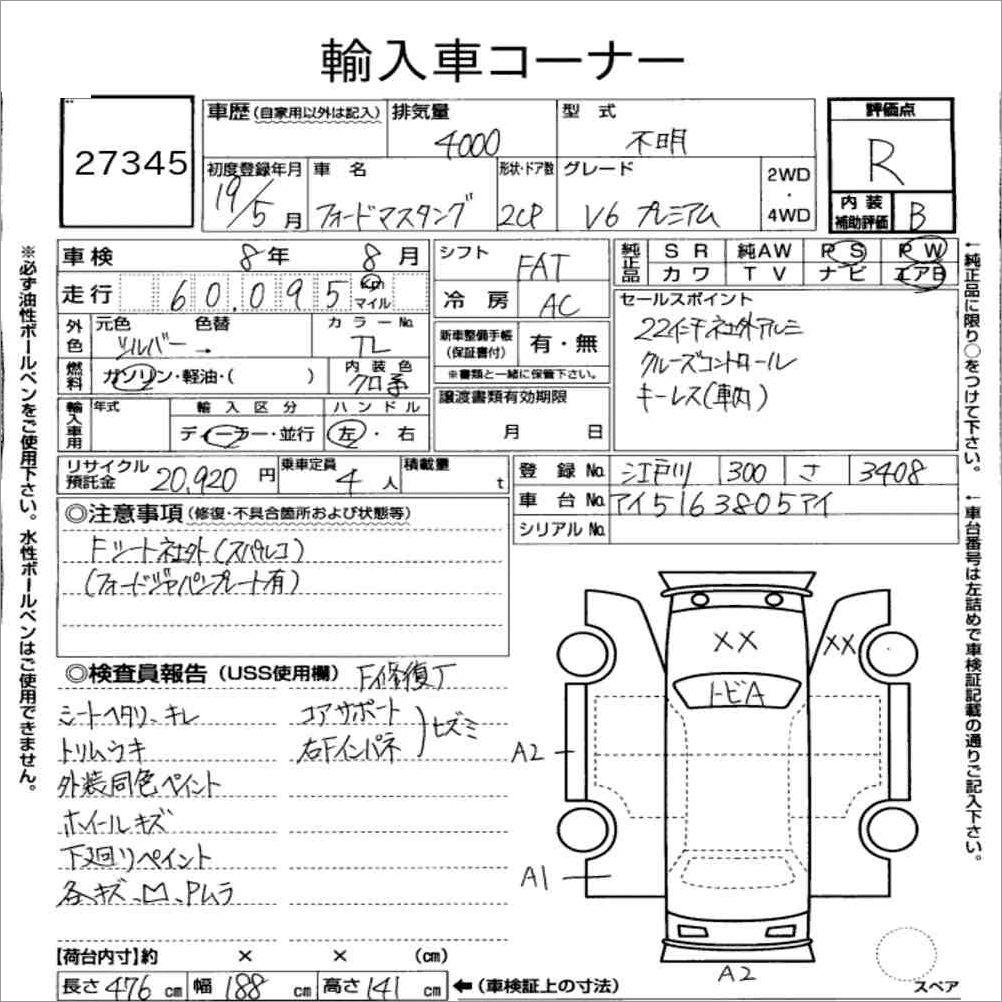 輸入車コーナー
27345
車歴(自家用以外は記入)
排気量
4000
型式
不明
評価点
R
初度登録年月
19/5月
車名
フォードマスタング
形状・ドア数
2CP
グレード
V6 プレミアム
2WD
・
4WD
内装
補助評価
B
車検
8年 8月
シフト
FAT
純正品
SR 純AW PS PW
カワ TV ナビ エアB
走行
60,095
km
マイル
冷房
AC
セールスポイント
22インチ社外アルミ
クルーズコントロール
キーレス(車内)
外色
元色 色替
シルバー →
カラーNo.
TL
新車整備手帳
(保証書付)
有・無
※書類と一緒に保管下さい。
燃料
ガソリン・軽油・( )
内装色
クロ系
譲渡書類有効期限
月 日
輸入車用
年式
輸入区分
ディーラー・並行
ハンドル
左・右
リサイクル
預託金
20,920円
乗車定員
4人
積載量
t
登録No.
江戸川 300 さ 3408
車台No.
アイ5163805アイ
シリアルNo.
◎注意事項(修復・不具合箇所および状態等)
Fシート社外(スパルコ)
(フォードジャパンプレート有)
◎検査員報告(USS使用欄)
F修復了
シートヘタリ、キレ
コアサポート
右Fインパネ
ヒズミ
トリムウキ
外装同色ペイント
ホイールキズ
下廻りペイント
各、キズ、凹、Pムラ
××
××
トビA
A2
A1
A2
スペア
【荷台内寸】約 × × (cm)
長さ 476 cm 幅 188 cm 高さ 141 cm
←(車検証上の寸法)
※必ず油性ボールペンをご使用下さい。水性ボールペンはご使用できません。
←純正品に限り○をつけて下さい。
←車台番号は左詰めで車検証記載の通りご記入下さい。